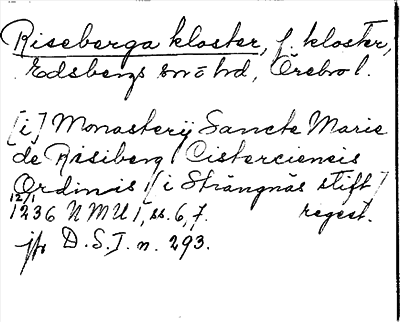 Riseberga kloster, f. kloster,
Edsbergs sn o hd, Örebro l.
[i] Monasterij Sancte Marie
de Risiberg Cisterciensis
Ordinis [i Strängnäs stift]
12/1
1236 NMU 1, ss. 6, 7. regest.
jfr D.S. I. n. 293.